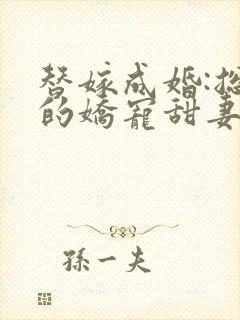 替嫁成婚:
的嬌寵甜妻
孫一夫